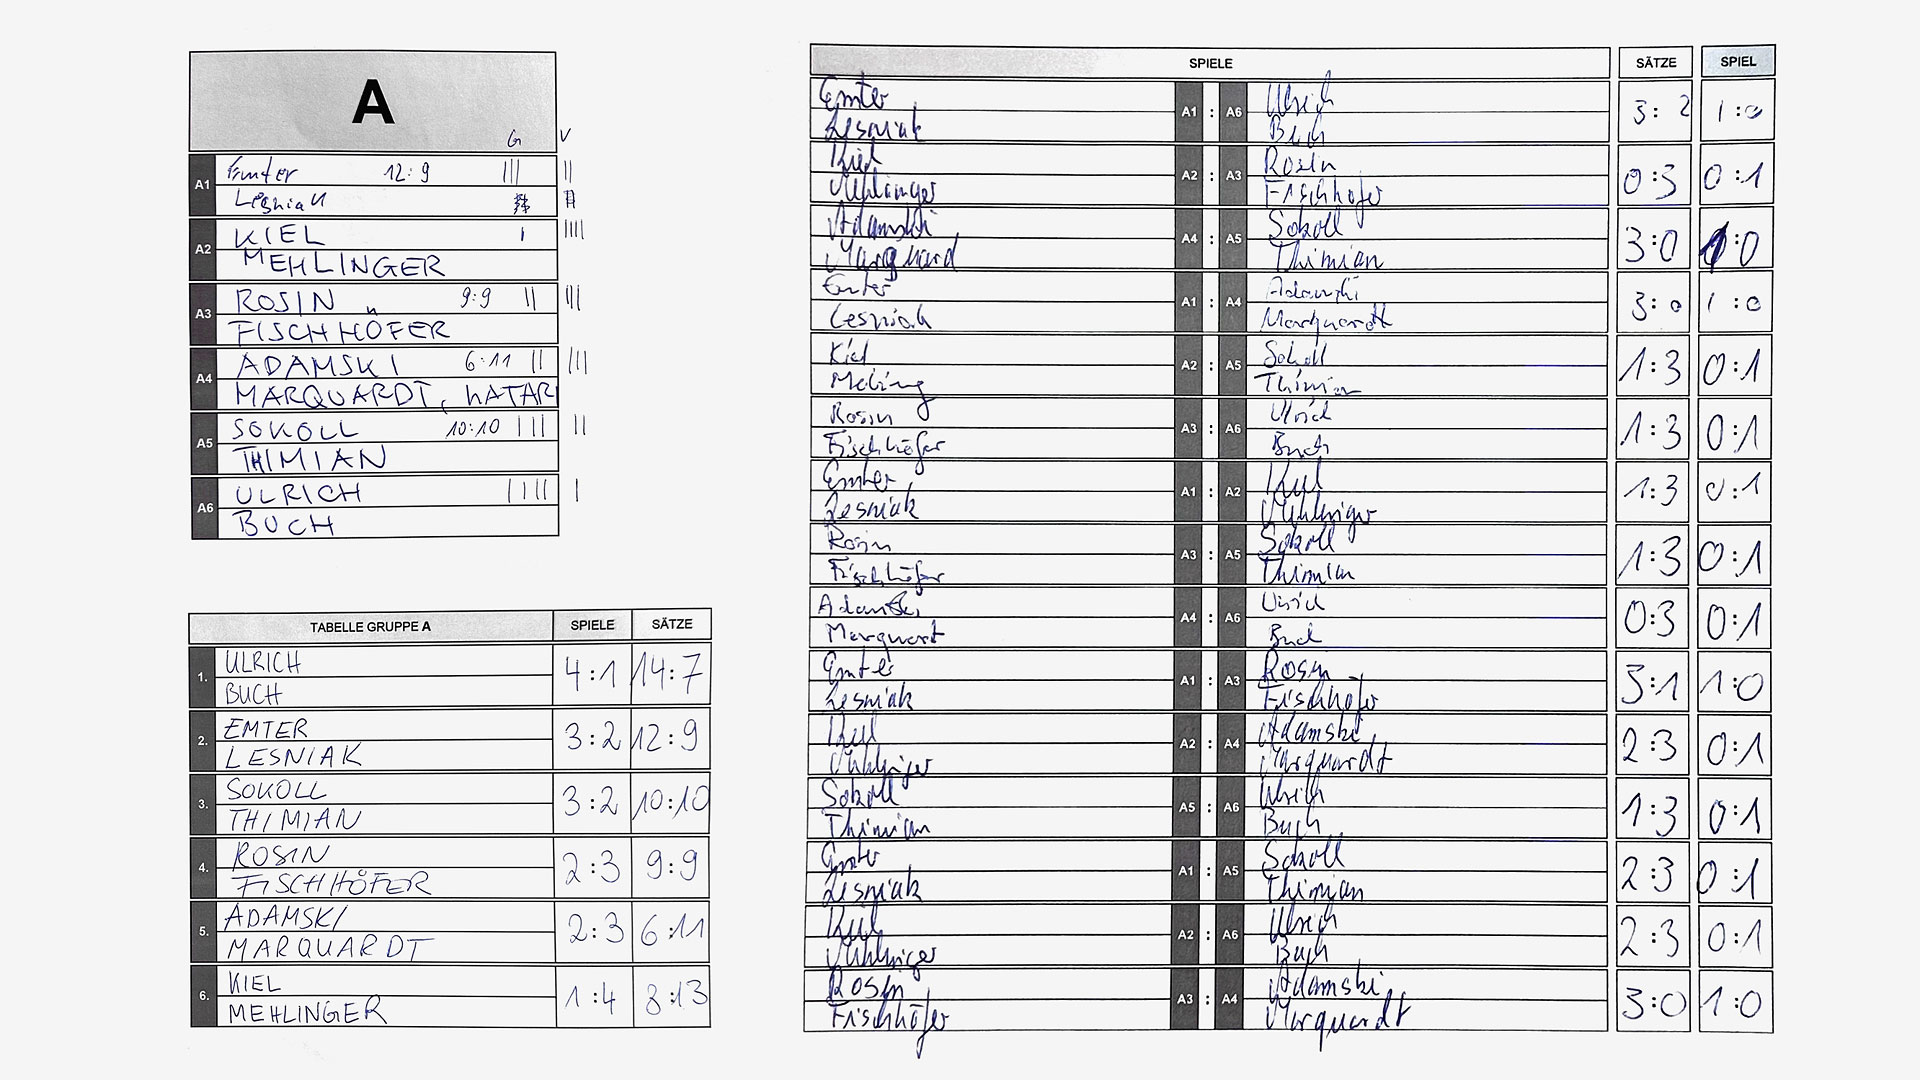 A
G V
A1 Emter 12:9 ||| ||
Lesniak
A2 KIEL | ||||
MEHLINGER
A3 ROSIN 9:9 || |||
FISCHHÖFER
A4 ADAMSKI 6:11 || |||
MARQUARDT, KATAR
A5 SOKOLL 10:10 ||| ||
THIMIAN
A6 ULRICH |||| |
BUCH
TABELLE GRUPPE A SPIELE SÄTZE
1. ULRICH 4:1 14:7
BUCH
2. EMTER 3:2 12:9
LESNIAK
3. SOKOLL 3:2 10:10
THIMIAN
4. ROSIN 2:3 9:9
FISCHHÖFER
5. ADAMSKI 2:3 6:11
MARQUARDT
6. KIEL 1:4 8:13
MEHLINGER
SPIELE SÄTZE SPIEL
Emter A1 : A6 Ulrich 3:2 1:0
Lesniak Buch
Kiel A2 : A3 Rosin 0:3 0:1
Mehlinger Fischhofer
Adamski A4 : A5 Sokoll 3:0 1:0
Marquard Thimian
Emter A1 : A4 Adamski 3:0 1:0
Lesniak Marquardt
Kiel A2 : A5 Sokoll 1:3 0:1
Mehling Thimian
Rosin A3 : A6 Ulrich 1:3 0:1
Fischhöfer Buch
Emter A1 : A2 Kiel 1:3 0:1
Lesniak Mehlinger
Rosin A3 : A5 Sokoll 1:3 0:1
Fischhöfer Thimian
Adamski A4 : A6 Ulrich 0:3 0:1
Marquart Buch
Emter A1 : A3 Rosin 3:1 1:0
Lesniak Fischhofer
Kiel A2 : A4 Adamski 2:3 0:1
Mehlinger Marquardt
Sokoll A5 : A6 Ulrich 1:3 0:1
Thimian Buch
Emter A1 : A5 Sokoll 2:3 0:1
Lesniak Thimian
Kiel A2 : A6 Ulrich 2:3 0:1
Mehlinger Buch
Rosin A3 : A4 Adamski 3:0 1:0
Fischhöfer Marquardt